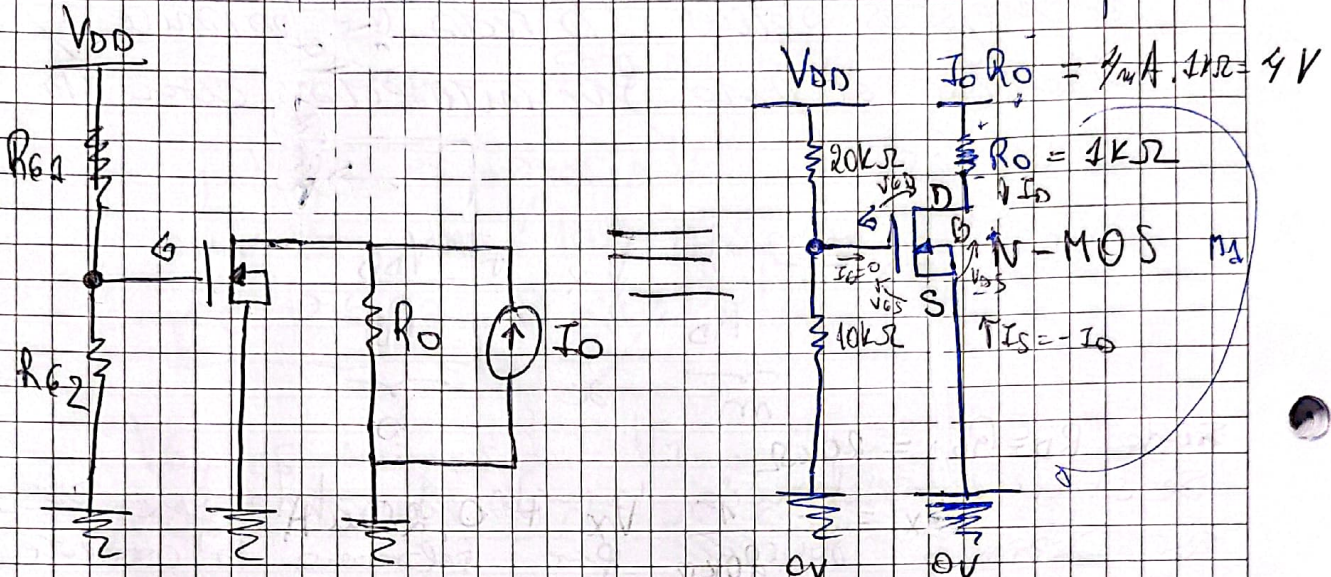 VDD
RG1
G
RG2
RO
IO
=
VDD
IO RO = 4mA . 1kΩ = 4 V
20kΩ
RO = 1kΩ
VGD
D
↓ID
G
B
N-MOS
M1
IG=0
VGS
VDS
S
10kΩ
↑IS = -ID
0V
0V